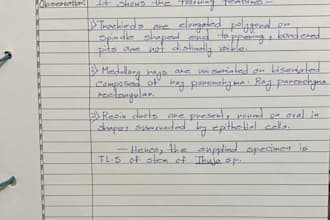 Observation: It shows the following features —
1) Tracheids are elongated polygonal or
spindle shaped end tappering, bordered
pits are not distinctly visible.
2) Medullary rays are uniseriated or biseriated
composed of ray parenchyma. Ray parenchyma
rectangular.
3) Resin ducts are present, round or oval in
shapes surrounded by epithelial cells.
— Hence, the supplied specimen is
T.L.S of stem of Thuja sp.